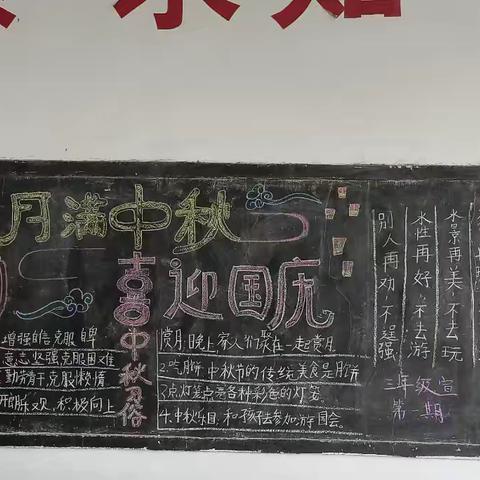 月满中秋
喜迎国庆
中秋习俗
增强自信克服自卑
意志坚强克服困难
勤劳肯干克服懒惰
开朗乐观,积极向上
赏月:晚上家人们聚在一起赏月
2.吃月饼 中秋节的传统美食是月饼
3.点灯笼点亮各种彩色的灯笼
4.中秋乐园,和孩子去参加游园会。
水景再美,不去玩
水性再好,不去游
别人再劝,不逞强
三年级宣
第一期